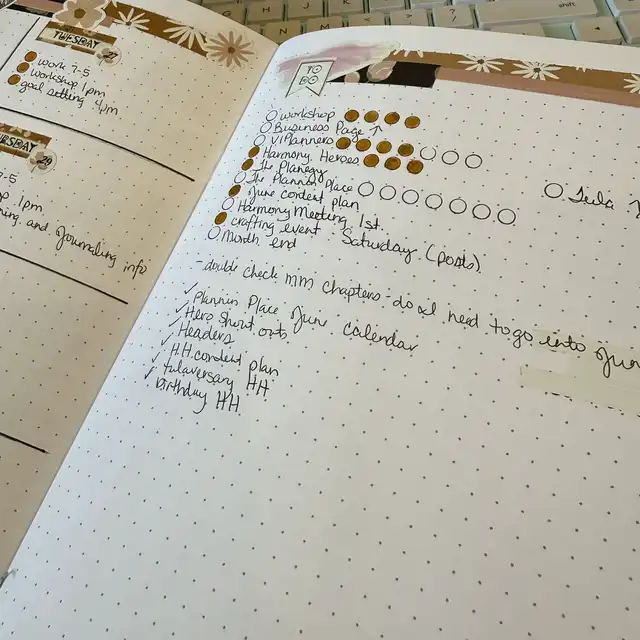 TUESDAY 27
work 7-5
workshop 1pm
goal setting 4pm
29
7-5
1pm
and Journaling info
TO
DO
workshop
Business Page ↑
VIPlanners
Harmony Heroes
The Planergy
The Plannin Place
June content plan
Harmony Meeting 1st.
crafting event Saturday (posts)
Month end
Tula
- double check MM chapters - do I need to go into Jun
✓ Plannin Place June calendar
✓ Hero Shout outs
✓ Headers
✓ H.H. content plan
✓ tulaversary HH
✓ birthday HH
shift